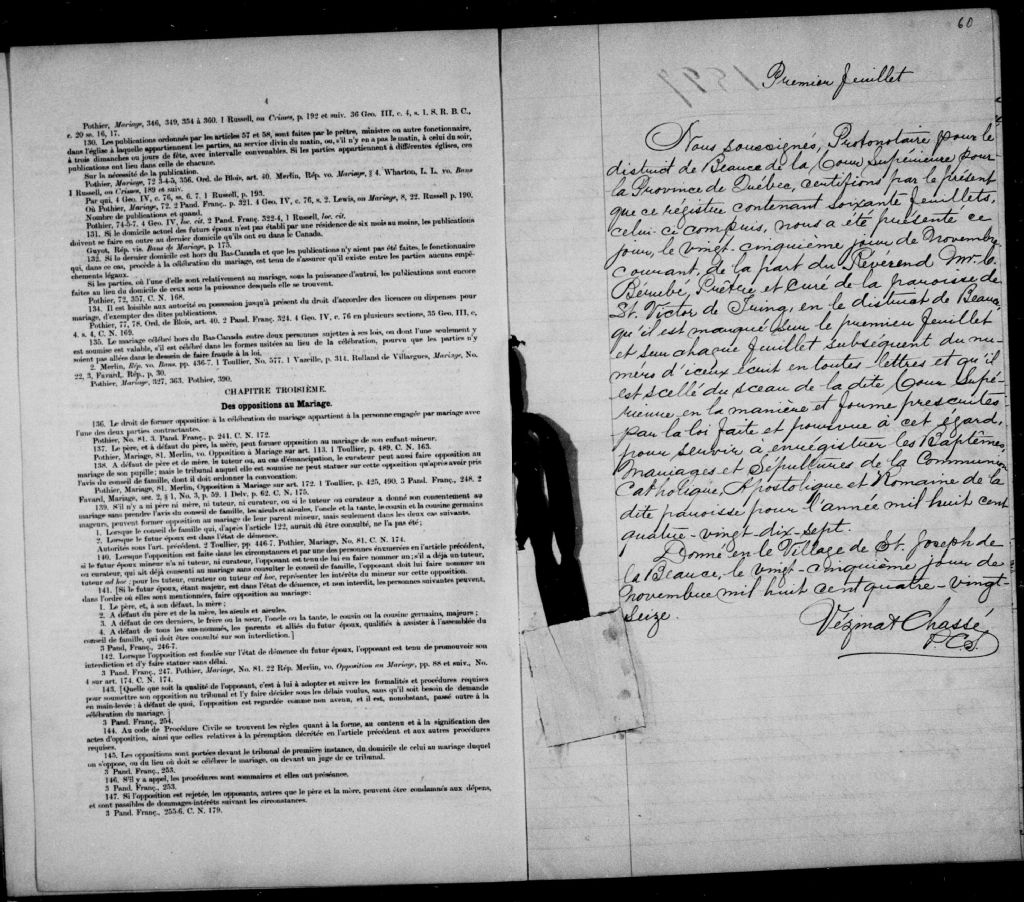 4
Pothier, Mariage, 346, 349, 354 à 360. 1 Russell, on Crimes, p. 192 et suiv. 36 Geo. III, c. 4, s. 1. S. R. B. C.,
c. 20 ss. 16, 17.
130. Les publications ordonnés par les articles 57 et 58, sont faites par le prêtre, ministre ou autre fonctionnaire,
dans l'église à laquelle appartiennent les parties, au service divin du matin, ou, s'il n'y en a pas le matin, à celui du soir,
à trois dimanches ou jours de fête, avec intervalle convenables. Si les parties appartiennent à différentes églises, ces
publications ont lieu dans celle de chacune.
Sur la nécessité de la publication.
Pothier, Mariage, 72 3-4-5, 356. Ord. de Blois, art. 40. Merlin, Rép. vo. Mariage, § 4. Wharton, L. L. vo. Bans
1 Russell, on Crimes, 189 et suiv.
Par qui, 4 Geo. IV, c. 76, ss. 6, 7. 1 Russell, p. 193.
Où Pothier, Mariage, 72. 2 Pand. Franç. p. 321. 4 Geo. IV, c. 76, s. 2. Lewis, on Mariage, 8, 22. Russell p. 190.
Nombre de publications et quand.
Pothier, 74-5-7. 4 Geo. IV, loc. cit. 2 Pand. Franç. 322-4, 1 Russell, loc. cit.
131. Si le domicile actuel des futurs époux n'est pas établi par une résidence de six mois au moins, les publications
doivent se faire en outre au dernier domicile qu'ils ont eu dans le Canada.
Guyot, Rép. vis. Bans de Mariage, p. 175.
132. Si le dernier domicile est hors du Bas-Canada et que les publications n'y aient pas été faites, le fonctionnaire
qui, dans ce cas, procède à la célébration du mariage, est tenu de s'assurer qu'il existe entre les parties aucuns empê-
chements légaux.
Si les parties, où l'une d'elle sont relativement au mariage, sous la puissance d'autrui, les publications sont encore
faites au lieu du domicile de ceux sous la puissance desquels elle se trouvent.
Pothier, 72, 357. C. N. 168.
134. Il est loisible aux autorité en possession jusqu'à présent du droit d'accorder des licences ou dispenses pour
mariage, d'exempter des dites publications.
Pothier, 77, 78. Ord. de Blois, art. 40. 2 Pand. Franç. 324. 4 Geo. IV, c. 76 en plusieurs sections, 35 Geo. III, c.
4. s. 4, C. N. 169.
135. Le mariage célébré hors du Bas-Canada entre deux personnes sujettes à ses lois, ou dont l'une seulement y
est soumise est valable, s'il est célébré dans les formes usitées au lieu de la célébration, pourvu que les parties n'y
soient pas allées dans le dessein de faire fraude à la loi.
2. Merlin, Rép. vo. Bans, pp. 436-7. 1 Toullier, No. 577. 1 Vazeille, p. 314. Rolland de Villargues, Mariage, No.
22, 3, Favard, Rép., p. 30.
Pothier, Mariage, 327, 363. Pothier, 390.
CHAPITRE TROISIÈME.
Des oppositions au Mariage.
136. Le droit de former opposition à la célébration de mariage appartient à la personne engagée par mariage avec
l'une des deux parties contractantes.
Pothier, No. 81. 3. Pand. Franç., p. 241. C. N. 172.
137. Le père, et à défaut du père, la mère, peut former opposition au mariage de son enfant mineur.
Pothier, Mariage, 81. Merlin, vo. Opposition à Mariage sur art. 113. 1 Toullier, p. 489. C. N. 163.
138. A défaut de père et de mère, le tuteur ou, au cas d'émancipation, le curateur peut aussi faire opposition au
mariage de son pupille; mais le tribunal auquel elle est soumise ne peut statuer sur cette opposition qu'après avoir pris
l'avis du conseil de famille, dont il doit ordonner la convocation.
Pothier, Mariage, 81. Merlin, Opposition à Mariage sur art. 172. 1 Toullier, p. 425, 490. 3 Pand. Franç., 248. 2
Favard, Mariage, sec. 2, § 1, No. 3, p. 59. 1 Delv. p. 62. C. N. 175.
139. S'il n'y a ni père ni mère, ni tuteur, ni curateur, ou si le tuteur ou curateur a donné son consentement au
mariage sans prendre l'avis du conseil de famille, les aïeuls et aïeules, l'oncle et la tante, le cousin et la cousine germains
majeurs, peuvent former opposition au mariage de leur parent mineur, mais seulement dans les deux cas suivants.
1. Lorsque le conseil de famille qui, d'après l'article 122, aurait dû être consulté, ne l'a pas été;
2. Lorsque le futur époux est dans l'état de démence.
Autorités sous l'art. précédent. 2 Toullier, pp. 446-7. Pothier, Mariage, No. 81. C. N. 174.
140. Lorsque l'opposition est faite dans les circonstances et par une des personnes énumérées en l'article précédent,
si le futur époux mineur n'a ni tuteur, ni curateur, l'opposant est tenu de lui en faire nommer un; s'il a déjà un tuteur,
ou curateur, qui ait déjà consenti au mariage sans consulter le conseil de famille, l'opposant doit lui faire nommer un
tuteur ad hoc; pour les tuteur, curateur ou tuteur ad hoc, représenter les intérêts du mineur sur cette opposition.
141. [Si le futur époux, étant majeur, est dans l'état de démence, et non interdit, les personnes suivantes peuvent,
dans l'ordre où elles sont mentionnées, faire opposition au mariage:
1. Le père, et, à son défaut, la mère;
2. A défaut du père et de la mère, les aïeuls et aïeules.
3. A défaut de ces derniers, le frère ou la sœur, l'oncle ou la tante, le cousin ou la cousine germains, majeurs;
4. A défaut de tous les sus-nommés, les parents et alliés du futur époux, qualifiés à assister à l'assemblée du
conseil de famille, qui doit être consulté sur son interdiction.]
3 Pand, Franç., 246-7.
142. Lorsque l'opposition est fondée sur l'état de démence du futur époux, l'opposant est tenu de promouvoir son
interdiction et d'y faire statuer sans délai.
3 Pand. Franç., 247. Pothier, Mariage, No. 81. 22 Rép. Merlin, vo. Opposition au Mariage, pp. 88 et suiv., No.
4 sur art. 174. C. N. 174.
143. [Quelle que soit la qualité de l'opposant, c'est à lui à adopter et suivre les formalités et procédures requises
pour soumettre son opposition au tribunal et l'y faire décider sous les délais voulus, sans qu'il soit besoin de demande
en main-levée; à défaut de quoi, l'opposition est regardée comme non avenu, et il est, nonobstant, passé outre à la
célébration du mariage.]
3 Pand. Franç., 254.
144. Au code de Procédure Civile se trouvent les règles quant à la forme, au contenu et à la signification des
actes d'opposition, ainsi que celles relatives à la péremption décrétée en l'article précédent et aux autres procédures
requises.
145. Les oppositions sont portées devant le tribunal de première instance, du domicile de celui au mariage duquel
on s'oppose, ou du lieu où doit se célébrer le mariage, ou devant un juge de ce tribunal.
3 Pand. Franç., 253.
146. S'il y a appel, les procédures sont sommaires et elles ont préséance.
3 Pand. Franç., 253.
147. Si l'opposition est rejetée, les opposants, autres que le père et la mère, peuvent être condamnés aux dépens,
et sont passibles de dommages-intérêts suivant les circonstances.
3 Pand. Franç., 255-6. C. N. 179.
60
1897
Premier feuillet
Nous soussignés, Protonotaire pour le
district de Beauce de la Cour Supérieure pour
la Province de Québec, certifions par le présent
que ce régistre contenant soixante feuillets,
celui-ci compris, nous a été présenté ce
jour, le vingt-cinquième jour de Novembre
courant, de la part du Révérend Mr. C.
Bérubé, Prêtre et Curé de la paroisse de
St. Victor de Tring, en le district de Beauce
qu'il est marqué sur le premier feuillet
et sur chaque feuillet subséquent du nu-
méro d'iceux écrit en toutes lettres et qu'il
est scellé du sceau de la dite Cour Supé-
rieure, en la manière et forme prescrites
par la loi faite et pourvue à cet égard,
pour servir à enrégistrer les Baptêmes,
Mariages et Sépultures de la Communion
Catholique, Apostolique et Romaine de la
dite paroisse pour l'année mil huit cent
quatre-vingt-dix-sept.
Donné en le Village de St. Joseph de
la Beauce, le vingt-cinquième jour de
novembre mil huit cent quatre-vingt-
seize.
Vézina & Chassé
P.C.S.